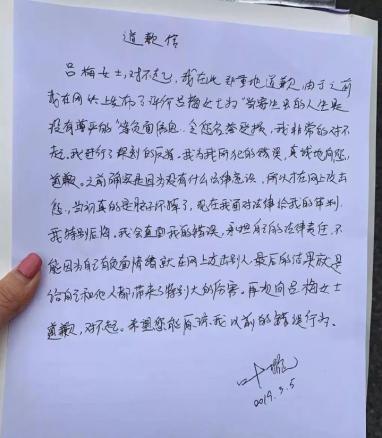 道歉信
吕梅女士,对不起,我在此郑重地道歉,由于之前
我在网上发布了评价吕梅女士为"当寄生虫的人生是
没有尊严的"等负面信息,令您名誉受损,我非常的对不
起,我进行了深刻的反省。我为我所犯的错误,真诚地向您
道歉。之前确实是因为没有什么法律意识,所以才在网上攻击
您,当初真的是脑子坏掉了,现在我面对法律给我的审判,
我特别后悔。我会直面我的错误,承担自己的法律责任,不
能因为自己有负面情绪就在网上攻击别人,最后的结果就是
给自己和他人都带来了特别大的伤害。再次向吕梅女士
道歉,对不起。希望您能原谅我以前的错误行为。
2019.9.5